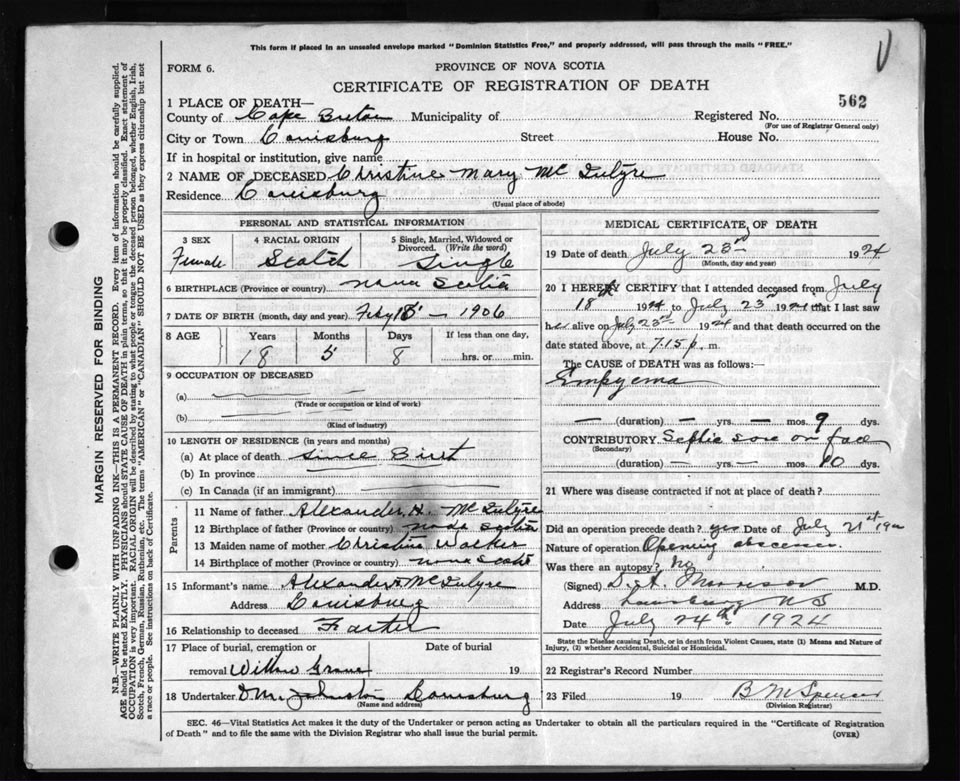 This form if placed in an unsealed envelope marked "Dominion Statistics Free," and properly addressed, will pass through the mails "FREE."
FORM 6.
PROVINCE OF NOVA SCOTIA
CERTIFICATE OF REGISTRATION OF DEATH
562
1 PLACE OF DEATH—
County of Cape Breton Municipality of Registered No.
(For use of Registrar General only)
City or Town Louisburg Street House No.
If in hospital or institution, give name
2 NAME OF DECEASED Christine Mary McIntyre
Residence Louisburg
(Usual place of abode)
PERSONAL AND STATISTICAL INFORMATION
3 SEX
Female
4 RACIAL ORIGIN
Scotch
5 Single, Married, Widowed or Divorced. (Write the word)
Single
6 BIRTHPLACE (Province or country) Nova Scotia
7 DATE OF BIRTH (month, day and year) Feby 15 – 1906
8 AGE Years Months Days If less than one day,
18 5 8 hrs. or min.
9 OCCUPATION OF DECEASED
(a)
(Trade or occupation or kind of work)
(b)
(Kind of industry)
10 LENGTH OF RESIDENCE (in years and months)
(a) At place of death Since Birth
(b) In province
(c) In Canada (if an immigrant)
Parents
11 Name of father Alexander H. McIntyre
12 Birthplace of father (Province or country) Nova Scotia
13 Maiden name of mother Christina Walker
14 Birthplace of mother (Province or country) Nova Scotia
15 Informant's name Alexander H McIntyre
Address Louisburg
16 Relationship to deceased Father
17 Place of burial, cremation or Date of burial
removal Willow Grove 19
18 Undertaker D M Johnston Louisburg
(Name and address)
MEDICAL CERTIFICATE OF DEATH
19 Date of death July 23rd 1924
(Month, day and year)
20 I HEREBY CERTIFY that I attended deceased from July
18th 1924 to July 23rd 1924 that I last saw
her alive on July 23rd 1924 and that death occurred on
date stated above, at 7.15 p. m.
The CAUSE of DEATH was as follows:
Empyema
(duration) — yrs. — mos. 9 dys.
CONTRIBUTORY Septic sore on face
(Secondary)
(duration) — yrs. — mos. 10 dys.
21 Where was disease contracted if not at place of death?
Did an operation precede death? yes Date of July 21st 1924
Nature of operation Opening abscess
Was there an autopsy? No
(Signed) D.A. Morrison M.D.
Address Louisburg N S
Date July 24th 1924
State the Disease causing Death, or in death from Violent Causes, state (1) Means and Nature of
Injury, (2) whether Accidental, Suicidal or Homicidal.
22 Registrar's Record Number
23 Filed 19 B M Spencer
(Division Registrar)
SEC. 46—Vital Statistics Act makes it the duty of the Undertaker or person acting as Undertaker to obtain all the particulars required in the "Certificate of Registration
of Death" and to file the same with the Division Registrar who shall issue the burial permit.
(OVER)
MARGIN RESERVED FOR BINDING
N.B.—WRITE PLAINLY WITH UNFADING INK—THIS IS A PERMANENT RECORD. Every item of information should be carefully supplied.
AGE should be stated EXACTLY. PHYSICIANS should STATE CAUSE OF DEATH in plain terms, so that it may be properly classified. Exact statement of
OCCUPATION is very important. RACIAL ORIGIN will be described by stating to what people or tongue the deceased person belonged, whether English, Irish,
Scotch, French, German, Russian, Ruthenian, etc. The terms "AMERICAN" or "CANADIAN" SHOULD NOT BE USED as they express citizenship but not
a race or people. See instructions on back of Certificate.